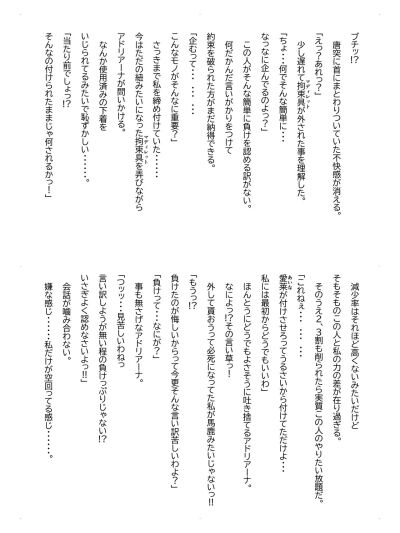 ブチッ!?
唐突に首にまとわりついていた不快感が消える。
「えっ?あれっ?」
少し遅れて拘束具が外された事を理解した。
「ちょ・・何でそんな簡単に・・・
なつなに企んでるのよっ?」
この人がそんな簡単に負けを認める訳がない。
何だかんだ言いがかりをつけて
約束を破られた方がまだ納得できる。
「企むって・・・・・・
こんなモノがそんなに重要?」
さっきまで私を締め付けていた・・・・・・
今はただの紐みたいになった拘束具を弄びながら
アドリアーナが問いかける。
なんか使用済みの下着を
いじられてるみたいで恥ずかしい・・・・・・。
「当たり前でしょっ!?
そんなの付けられたままじゃ何されるかっ!」
減少率はそれほど高くないみたいだけど
そもそものこの人と私の力の差が在り過ぎる。
そのうえ2、3割も削られたら実質この人のやりたい放題だ。
「これねぇ・・・・・・
愛菜が付けさせろってうるさいから付けてただけよ・・・
私には最初からどうでもいいわ」
ほんとうにどうでもよさそうに吐き捨てるアドリアーナ。
なによっ!?その言い草っ!
外して貰おうって必死になってた私が馬鹿みたいじゃないっ!!
「もうっ!?
負けたのが悔しいからって今更そんな言い訳苦しいわよ?」
「負けって・・・なにが?」
事も無さげなアドリアーナ。
「つッッ・・見苦しいわねっ
言い訳しようが無い程の負けっぷりじゃない!?
いさぎよく認めなさいよっ!!」
会話が噛み合わない。
嫌な感じ・・・・・私だけが空回ってる感じ・・・・・・。